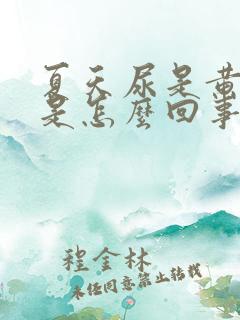 夏天尿是黄
是怎麼回事
程金林
未经同意禁止转载